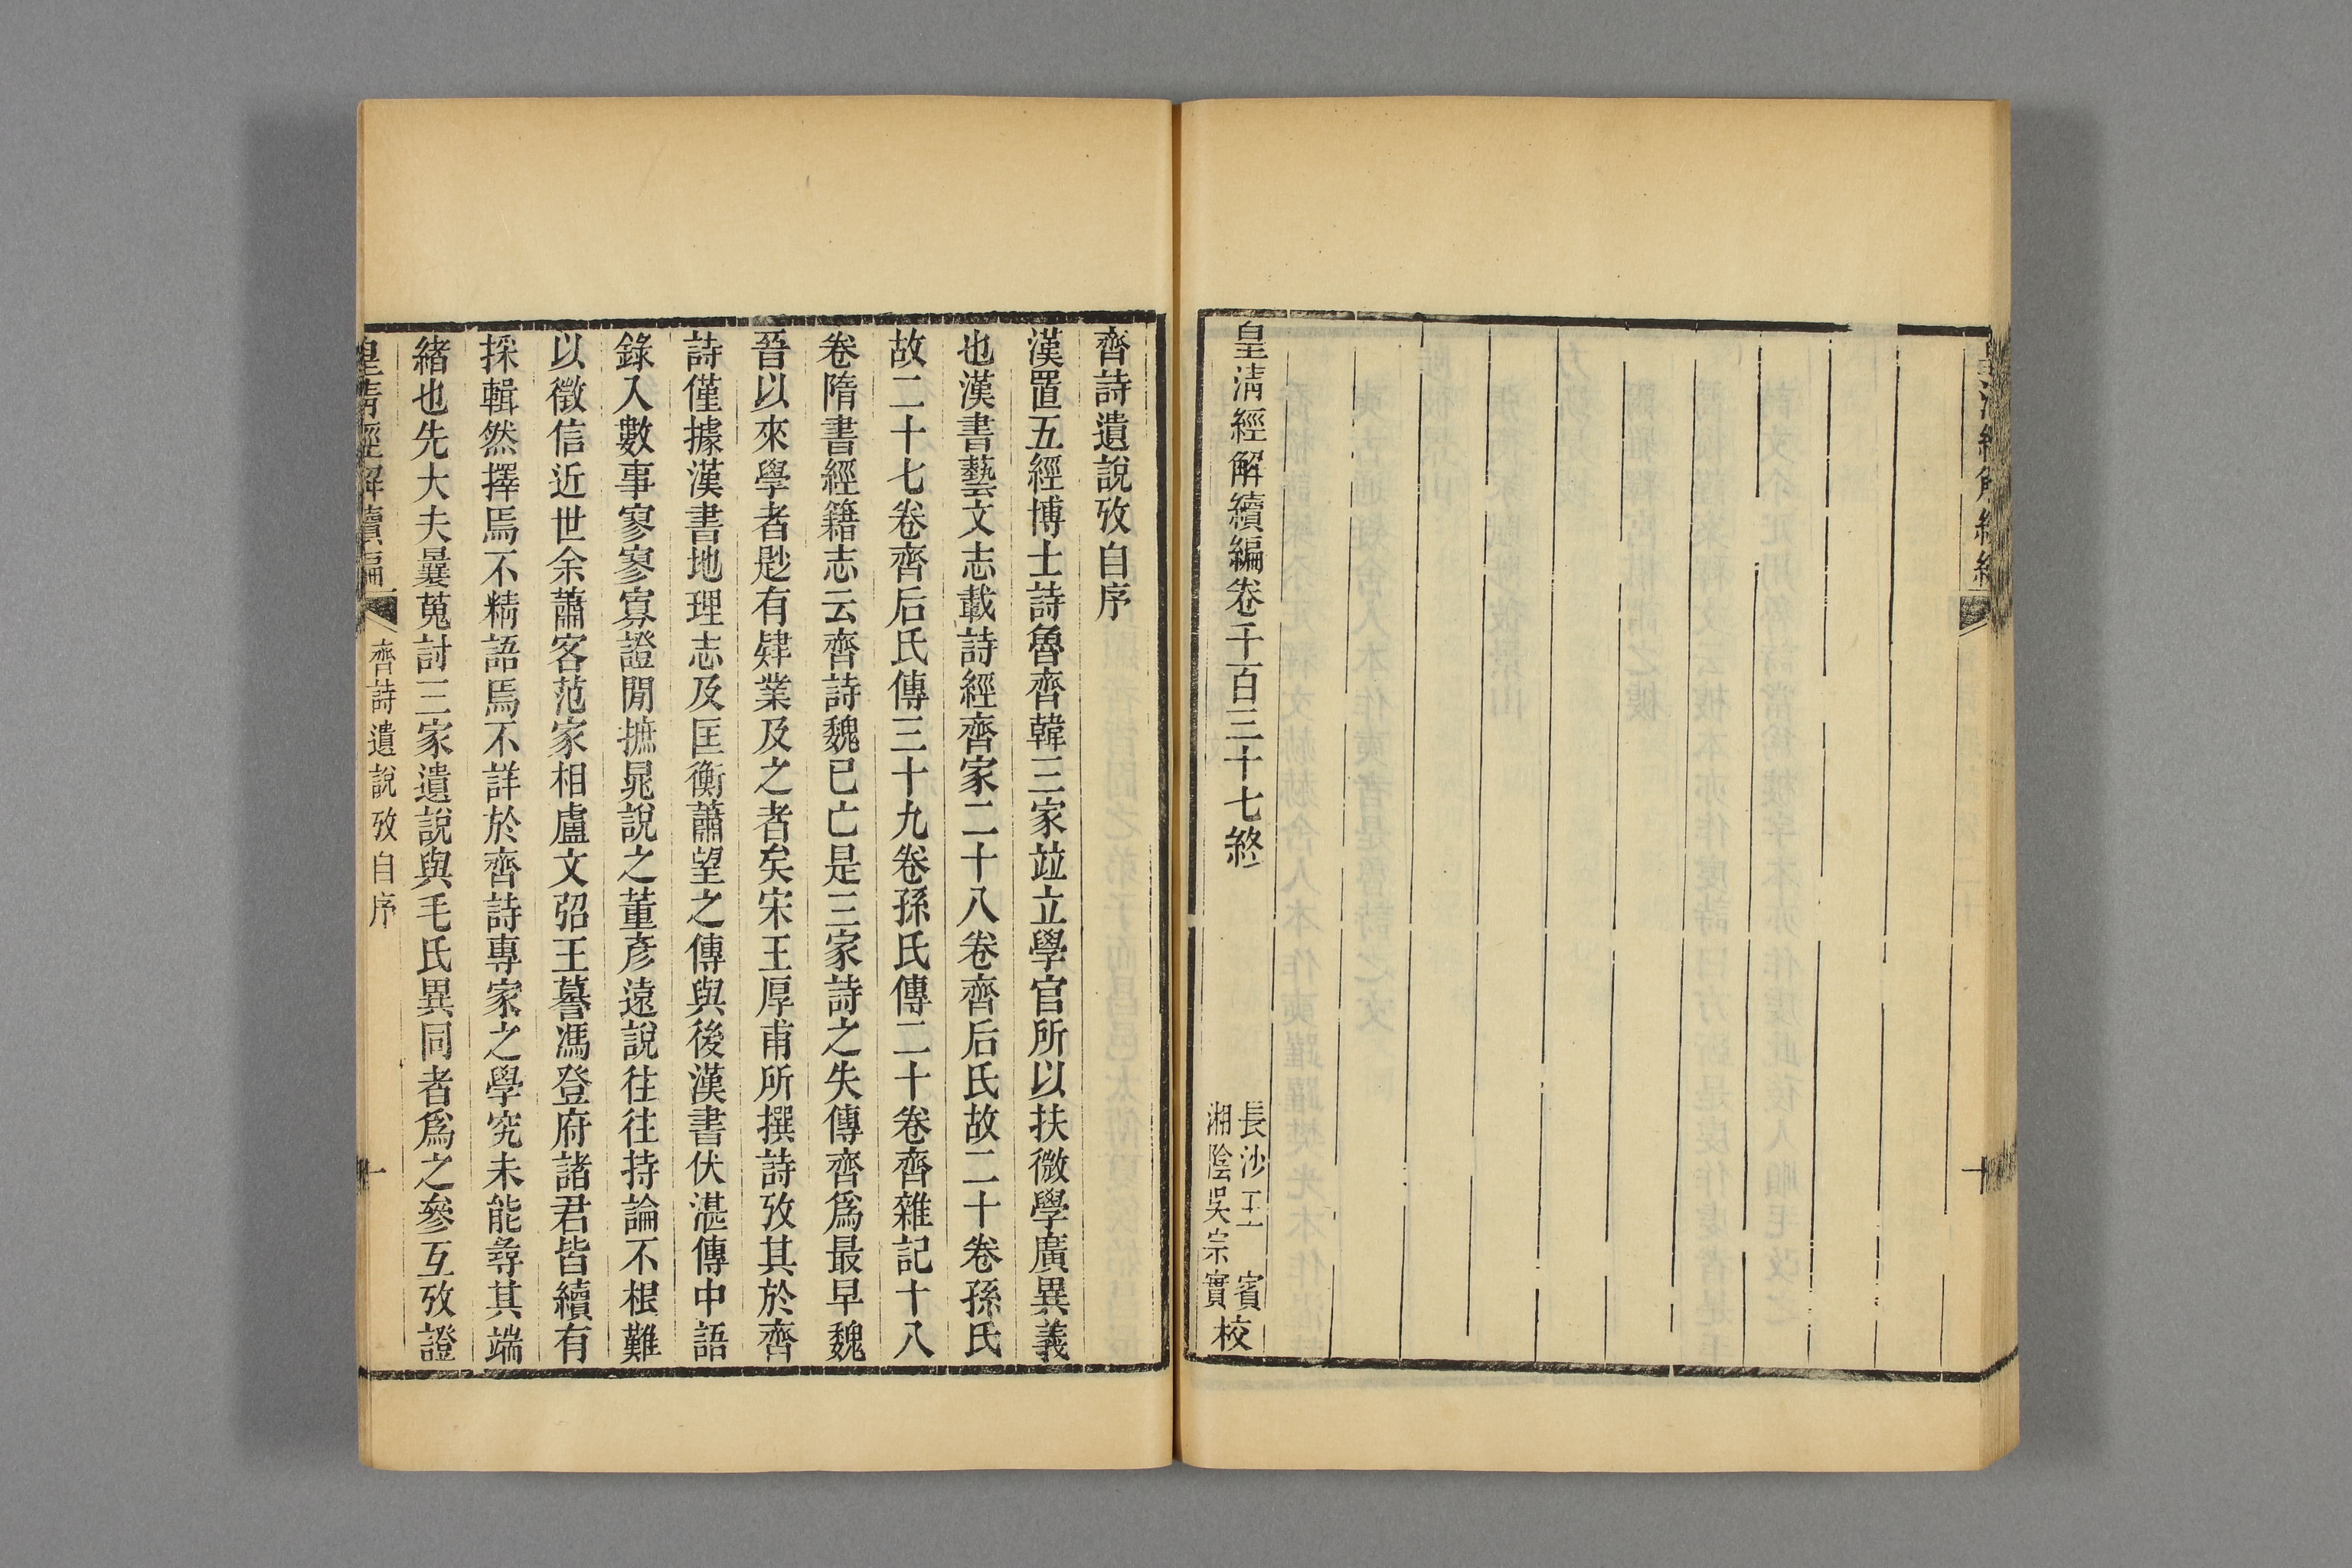 皇清經解續編卷千百三十七終
長沙王 賓
湘陰吳宗實
校
齊詩遺說攷自序
漢置五經博士詩魯齊韓三家竝立學官所以扶微學廣異義
也漢書藝文志載詩經齊家二十八卷齊后氏故二十卷孫氏
故二十七卷齊后氏傳三十九卷孫氏傳二十卷齊雜記十八
卷隋書經籍志云齊詩魏已亡是三家詩之失傳齊爲最早魏
晉以來學者尟有肄業及之者矣宋王厚甫所撰詩攷其於齊
詩僅據漢書地理志及匡衡蕭望之傳與後漢書伏湛傳中語
錄入數事寥寥寡證閒摭晁說之董彥遠說往往持論不根難
以徵信近世余蕭客范家相盧文弨王謩馮登府諸君皆續有
採輯然擇焉不精語焉不詳於齊詩專家之學究未能尋其端
緒也先大夫曩蒐討三家遺說與毛氏異同者爲之參互攷證
皇清經解續編
齊詩遺說攷自序
一